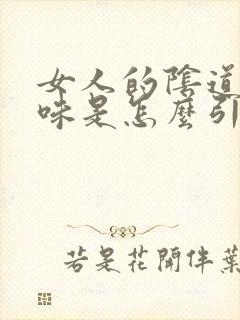 女人的陰道
味是怎麼引
若是花開伴葉